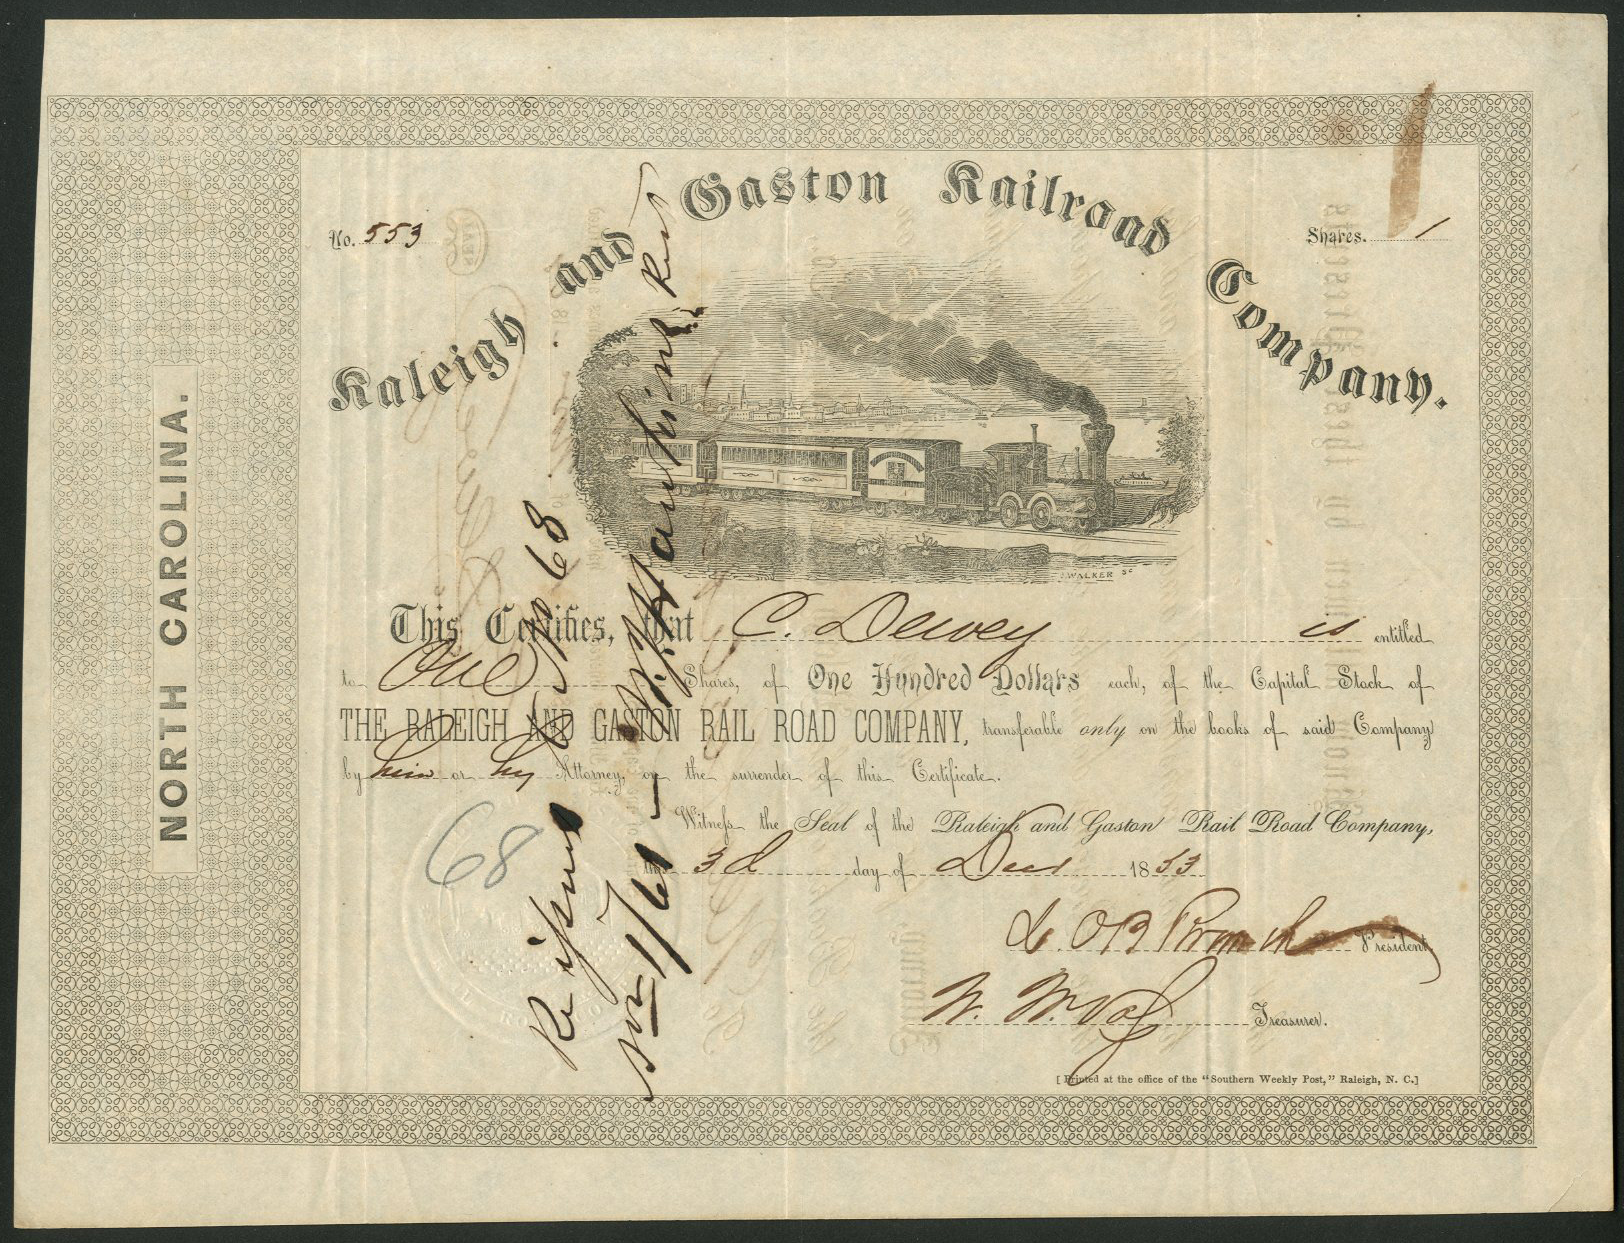 No. 553
Shares. 1
Raleigh and Gaston Railroad Company.
J. WALKER Sc
NORTH CAROLINA.
This Certifies, that C. Dewey is entitled
to One Shares, of One Hundred Dollars each, of the Capital Stock of
THE RALEIGH AND GASTON RAIL ROAD COMPANY, transferable only on the books of said Company
by him or his Attorney, on the surrender of this Certificate.
Witness the Seal of the Raleigh and Gaston Rail Road Company,
this 3d day of Decr 1853
L. O'B Branch President
W. W. Vass Treasurer.
[Printed at the office of the "Southern Weekly Post," Raleigh, N. C.]
68
No 68
Hawkins Prest